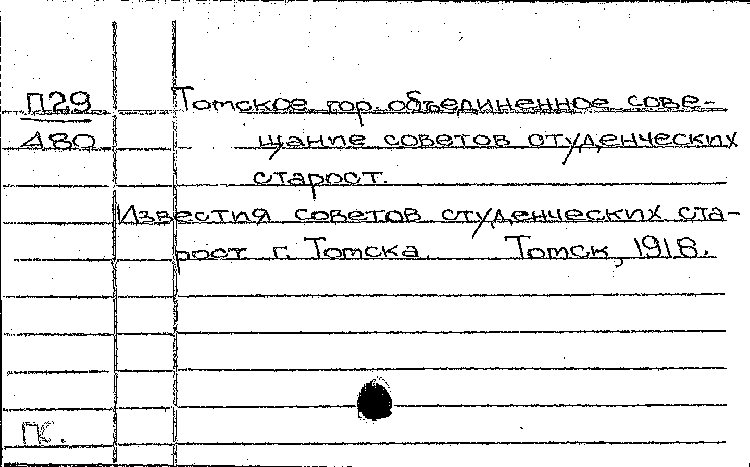 П29
480
Томское гор. объединенное сове-
щание советов студенческих
старост.
Известия советов студенческих ста-
рост г. Томска. Томск, 1918.
ПК.